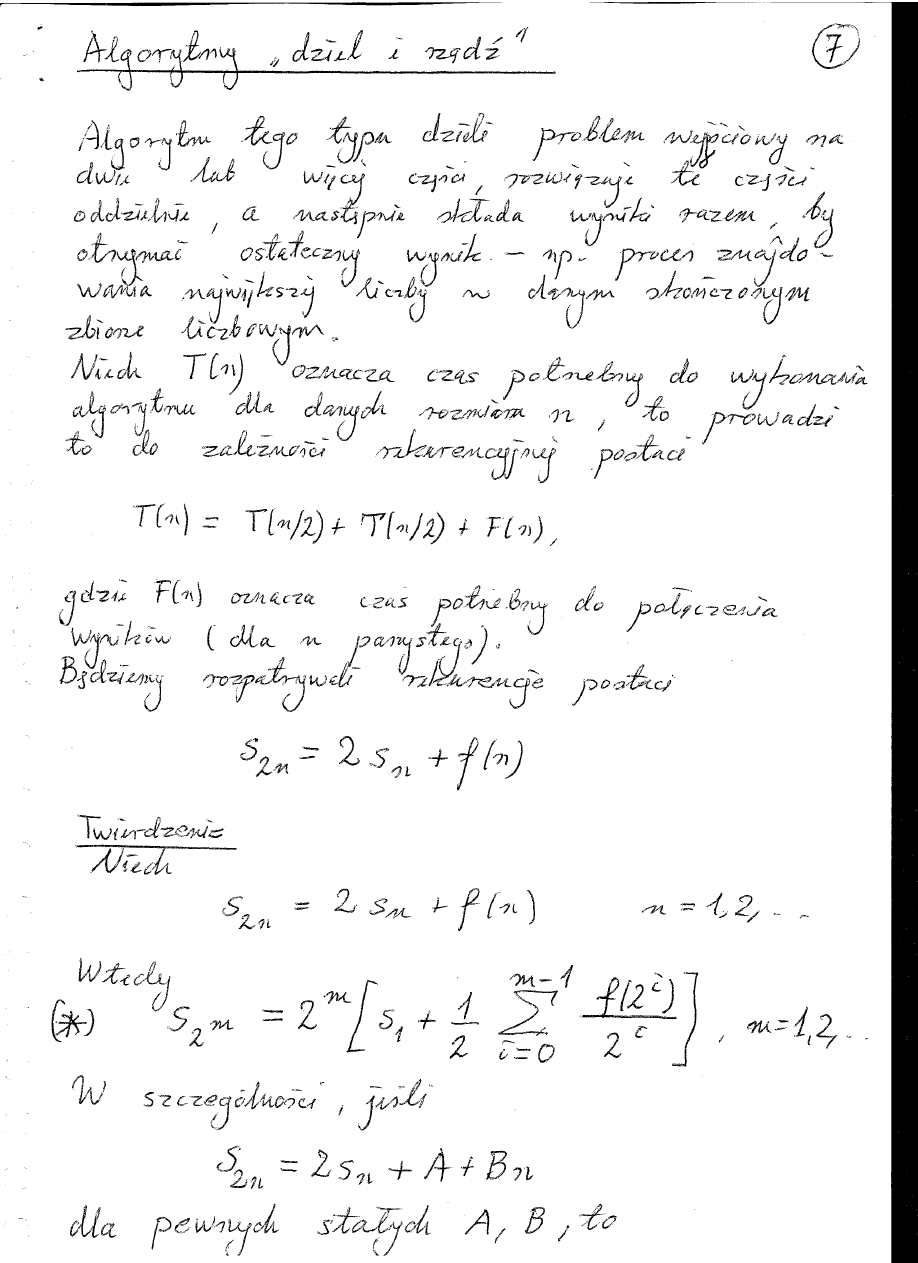 Algorytmy „dziel i rządź"
7
Algorytm tego typu dzieli problem wejściowy na
dwie lub więcej części, rozwiązuje te części
oddzielnie, a następnie składa wyniki razem, by
otrzymać ostateczny wynik – np. proces znajdo-
wania największej liczby w danym skończonym
zbiorze liczbowym.
Niech T(n) oznacza czas potrzebny do wykonania
algorytmu dla danych rozmiaru n, to prowadzi
to do zależności rekurencyjnej postaci
T(n) = T(n/2) + T(n/2) + F(n),
gdzie F(n) oznacza czas potrzebny do połączenia
wyników (dla n parzystego).
Będziemy rozpatrywali rekurencje postaci
s_{2n} = 2 s_n + f(n)
Twierdzenie
Niech
s_{2n} = 2 s_n + f(n) n = 1,2,...
Wtedy
(*) s_{2^m} = 2^m [ s_1 + \frac{1}{2} \sum_{i=0}^{m-1} \frac{f(2^i)}{2^i} ], m=1,2,...
W szczególności, jeśli
s_{2n} = 2 s_n + A + Bn
dla pewnych stałych A, B, to